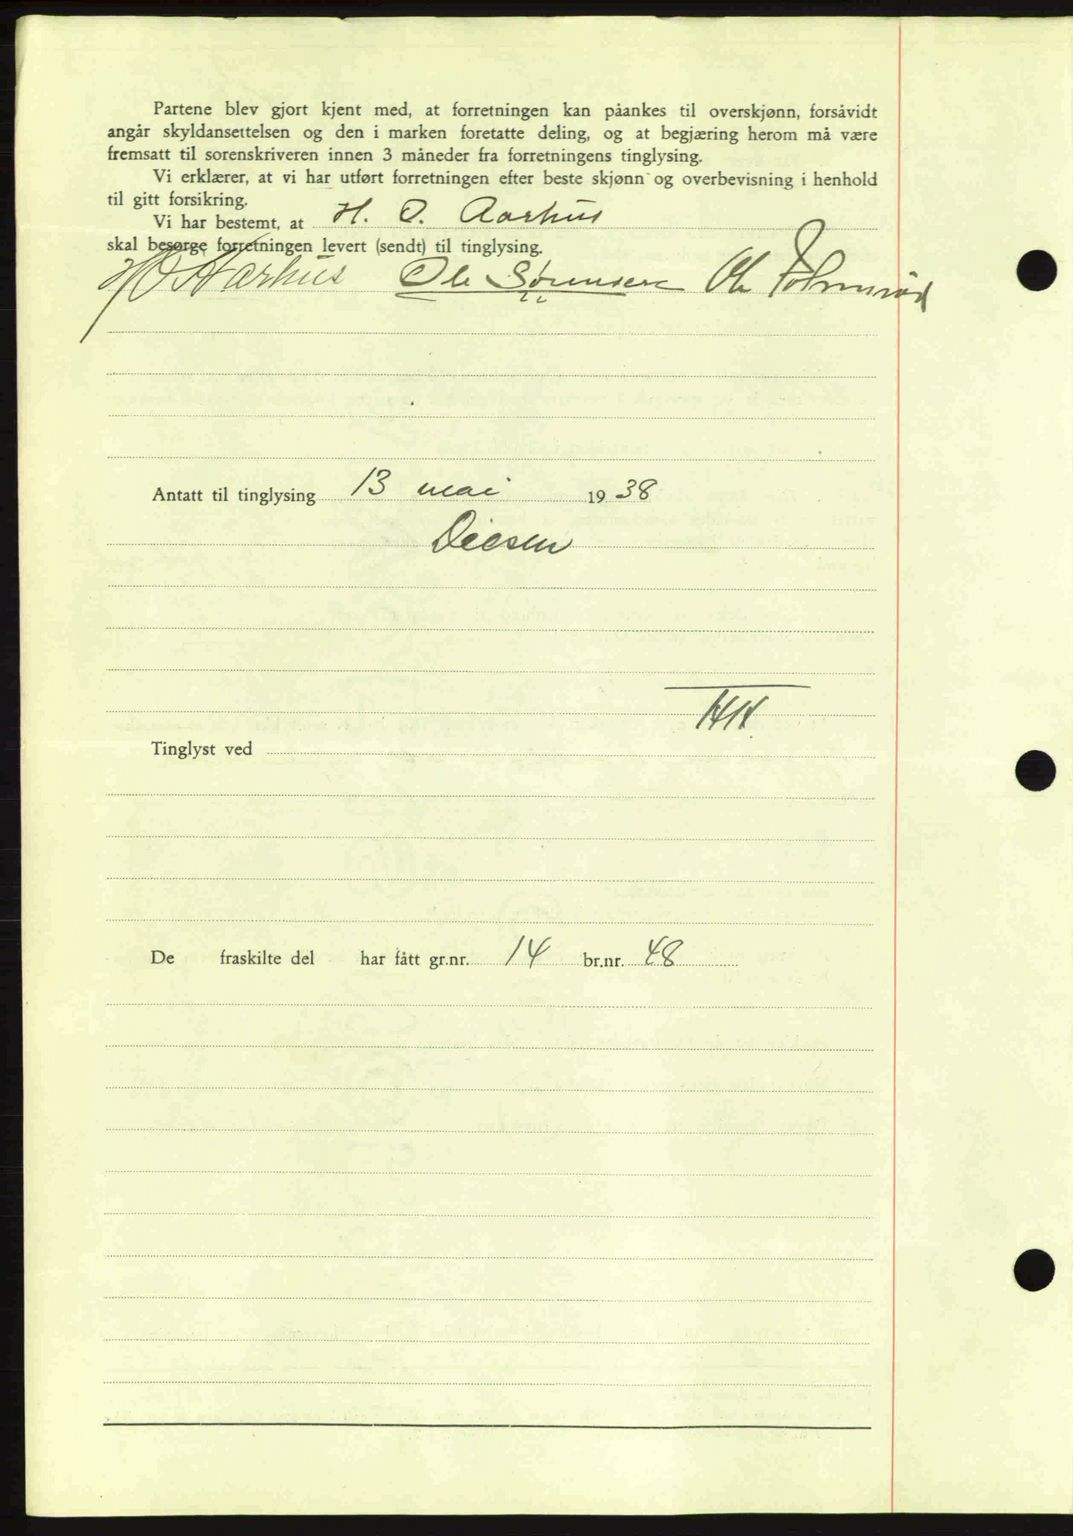 Partene blev gjort kjent med, at forretningen kan påankes til overskjønn, forsåvidt
angår skyldansettelsen og den i marken foretatte deling, og at begjæring herom må være
fremsatt til sorenskriveren innen 3 måneder fra forretningens tinglysing.
Vi erklærer, at vi har utført forretningen efter beste skjønn og overbevisning i henhold
til gitt forsikring.
Vi har bestemt, at H. O. Aarhus
skal besørge forretningen levert (sendt) til tinglysing.
H O Aarhus Ole Sørensen Ole
Antatt til tinglysing 13 mai 19 38
Diesen
Tinglyst ved
De fraskilte del har fått gr.nr. 14 br.nr. 48